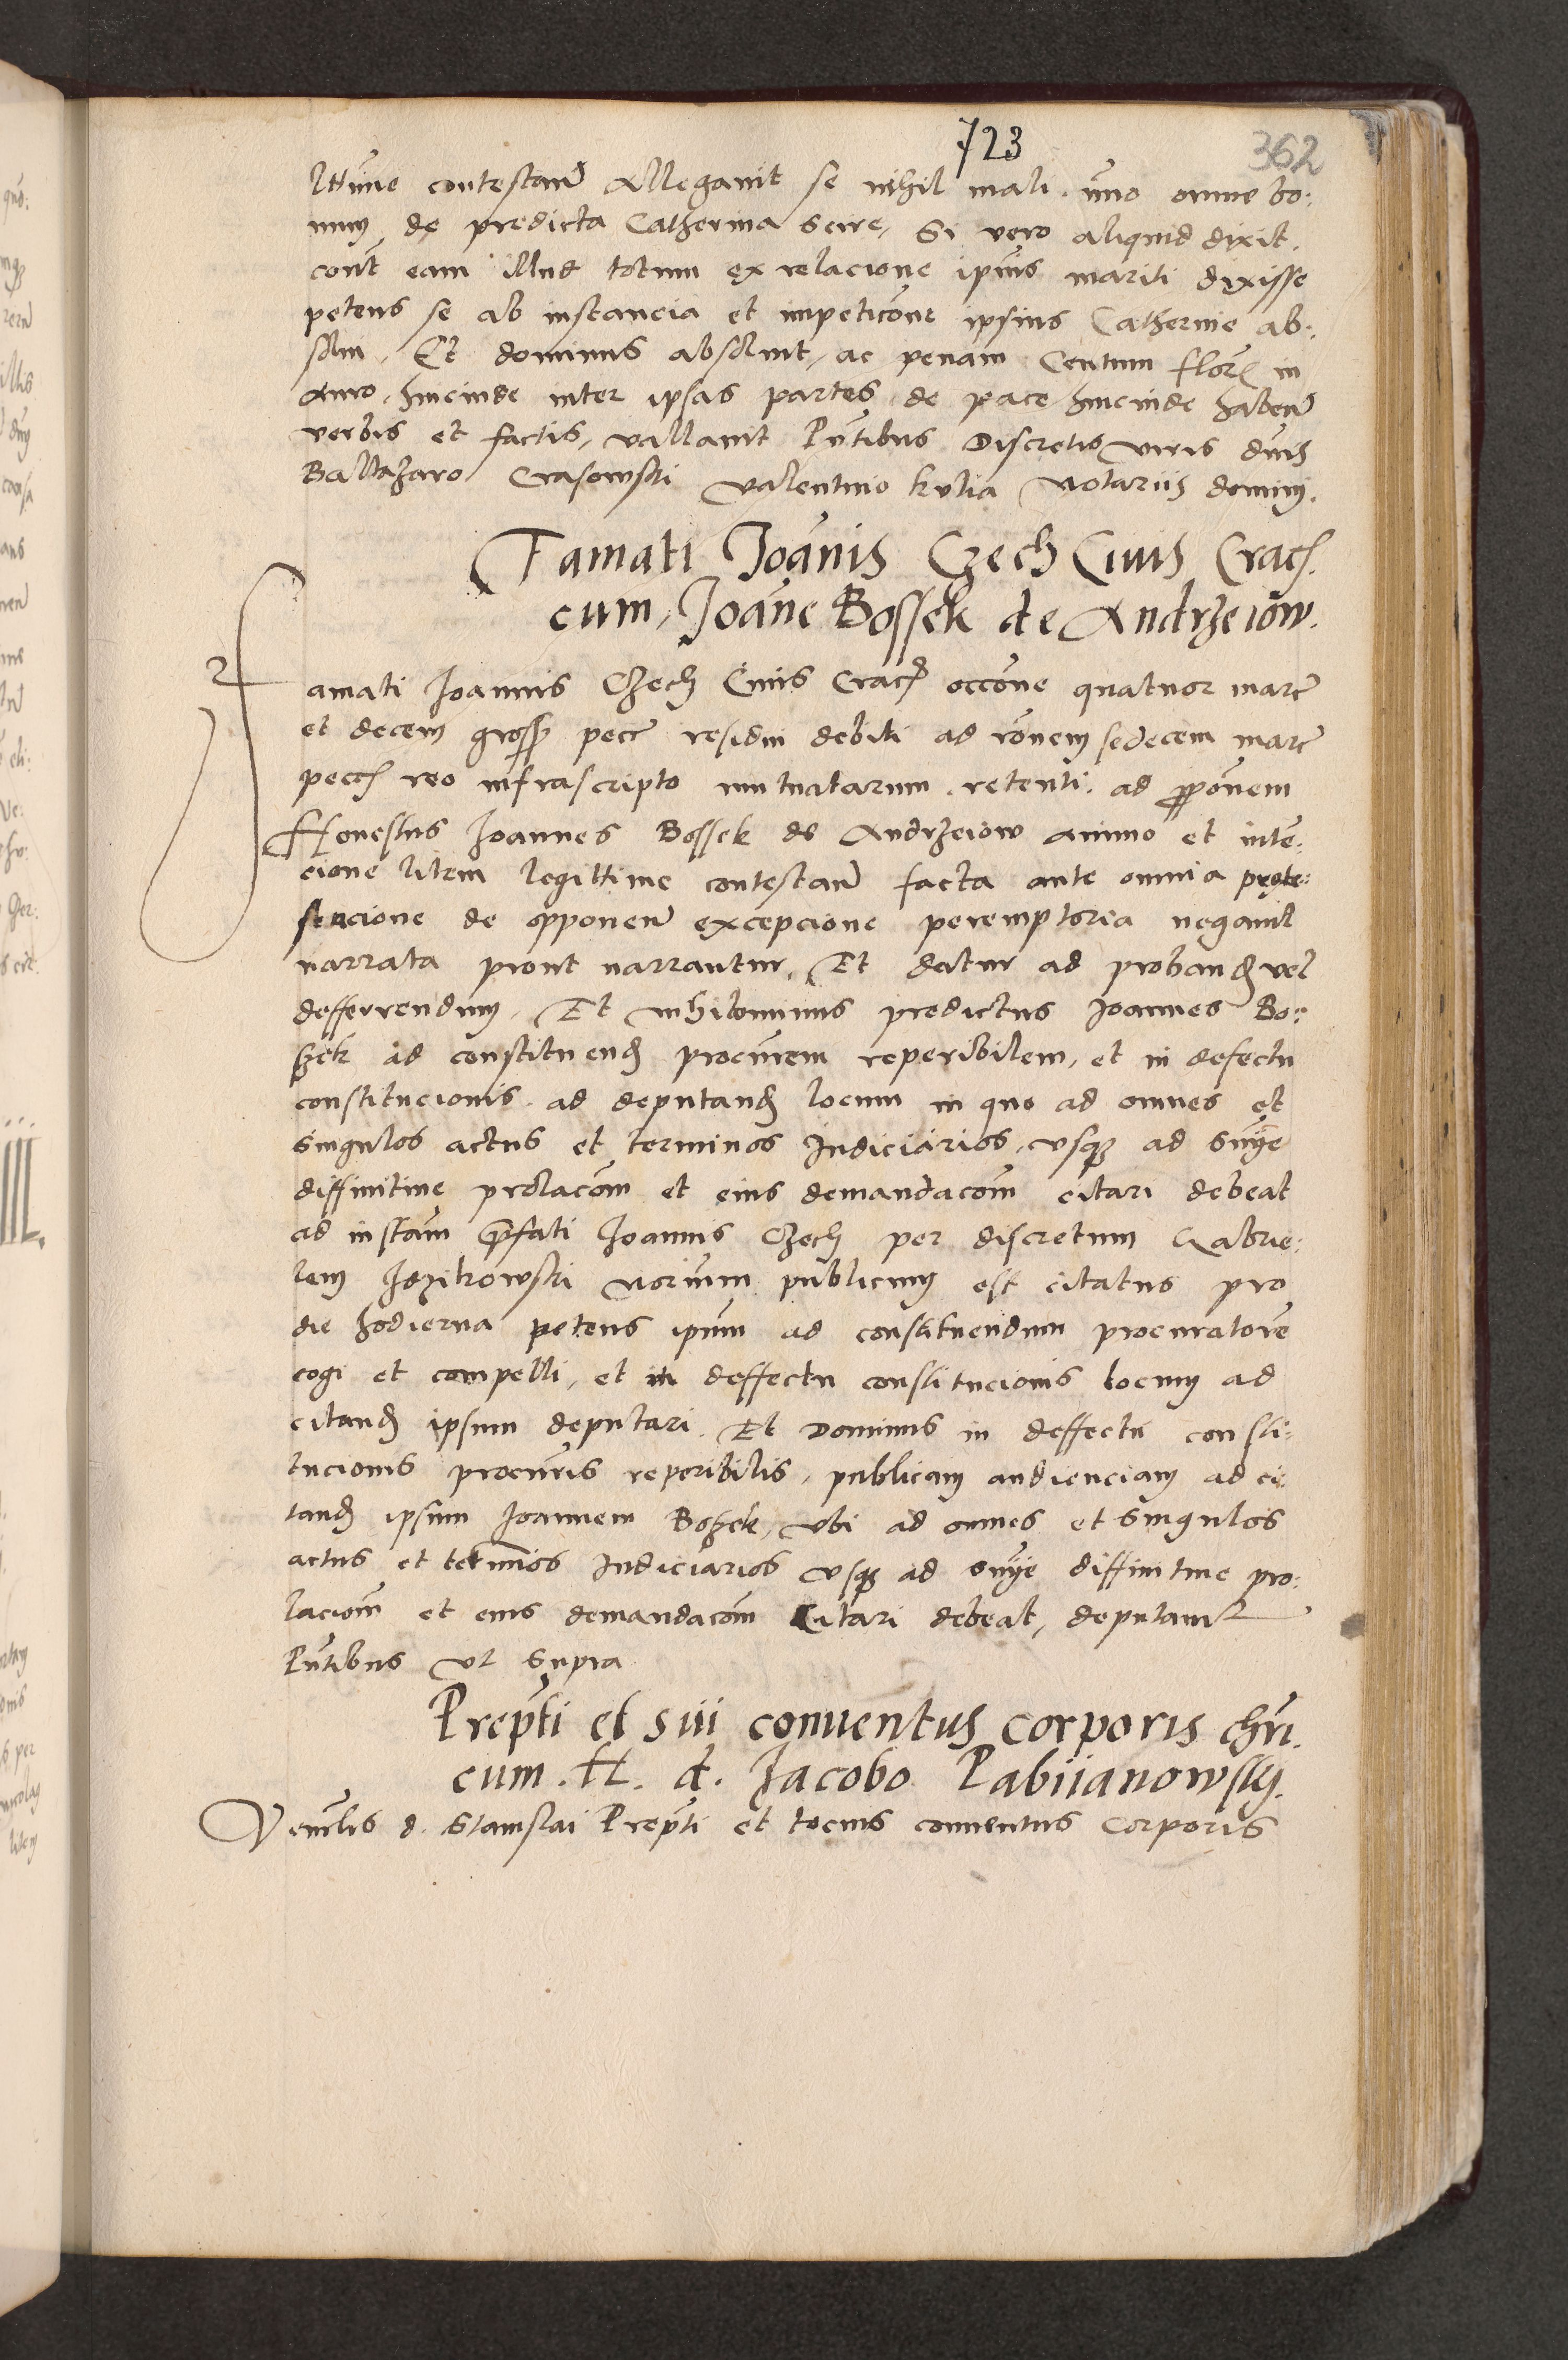 723
362
lttime contestand Allegauit se nihil mali. imo omne bo:
num de predicta Catherina scire, Si vero aliquid dixit.
cont eam illud totum ex relacione ipius mariti dixisse
petens se ab instancia et impeticone ipsius Catherine ab:
solui. Et dominus absoluit, ac penam Centum flor in
auro, hincinde inter ipsas partes de pace hincinde habend
verbis et factis, vallauit Pntibus Discretis viris dnis
Baltazaro Crasowski Valentino kulia Notariis domini.
Famati Joānis Czech Ciuis Crac
cum, Joāne Bossek de Andrzeiow.
Famati Joannis Czech Ciuis Crac occone quatuor marc
et decem gross pecc residui debiti ad ronem sedecem marc
pecc reo infrascripto mutuatarum retenti. ad proponem
Honestus Joannes Bossek de Andrzeiow animo et inten:
cione litem legittime contestand facta ante omnia prote:
stacione de opponend excepcione peremptoria negauit
narrata prout narrantur, Et datur ad proband vel
defferrendum, Et nihilominus predictus Joannes Bo:
szek ad constituend procurem reperibilem, et in defectu
constitucionis ad deputand locum in quo ad omnes et
singulos actus et terminos Judiciarios, vsque ad snije
diffinitiue prolacom et eius demandacom citari debeat
ad instam prefati Joannis Czech per discretum Gabrie:
lem norium publicum est citatus pro
die hodierna petens ipum ad constituendum procuratore
cogi et compelli, et in deffectu constitucionis locum ad
citand ipsum deputari. Et Dominus in deffectu consti:
tucionis procuris reperibilis, publicam audienciam ad ci:
tand ipsum Joannem Boszek, vbi ad omnes et singulos
actus et terminos Judiciarios vsque ad snije diffinitiue pro:
laciom et eius demandacom Citari debeat, deputauit
Pntibus vt supra
Prepti et sui conuentus corporis chri.
cum. H. d. Jacobo Pabiianowsky.
Venrlis d. Stanislai Prepti et tocius conuentus Corporis